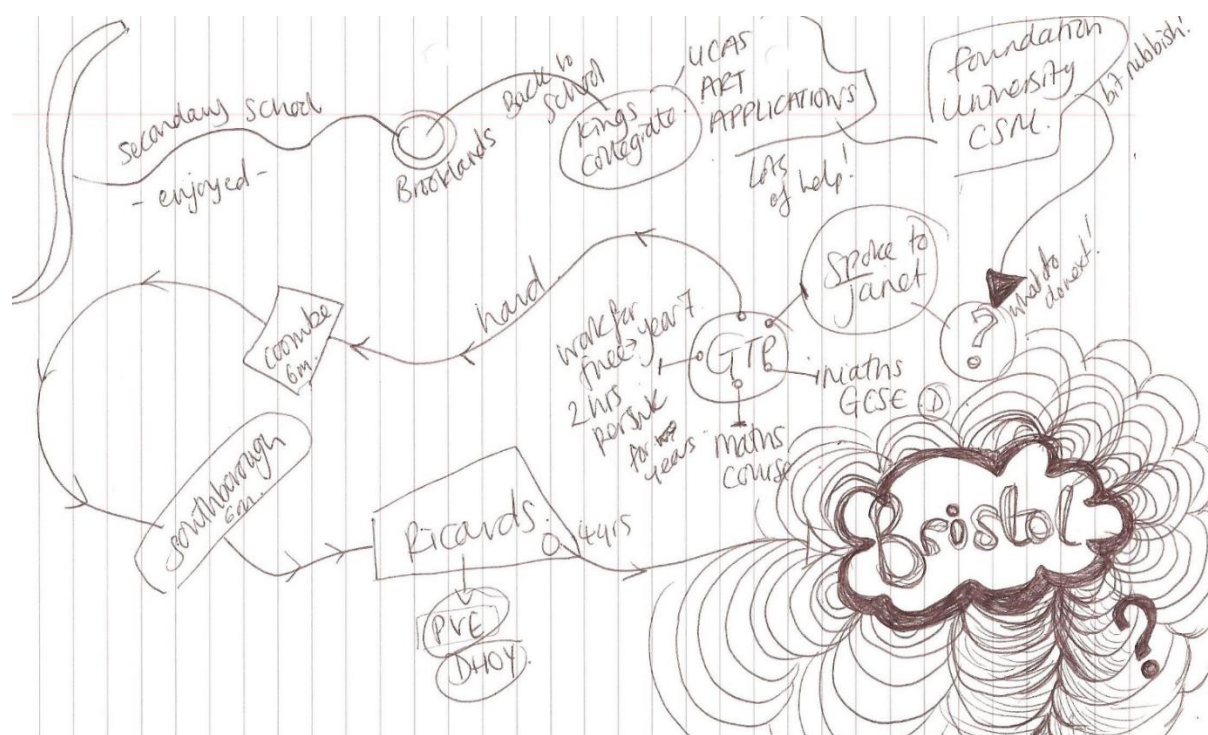 secondary school
- enjoyed -
Brooklands
Back to
school
Kings
collegiate.
UCAS
ART
APPLICATIONS
Lots
of help!
foundation
university
CSM.
bit rubbish!
what to
do next!
?
Spoke to
Janet
GTP
maths
GCSE D
maths
course
work for
free > year 7.
2 hrs
per wk
for
years
hard
coombe
6m.
southborough
6m.
Ricards.
4yrs
PVE
DHOY.
Bristol
?